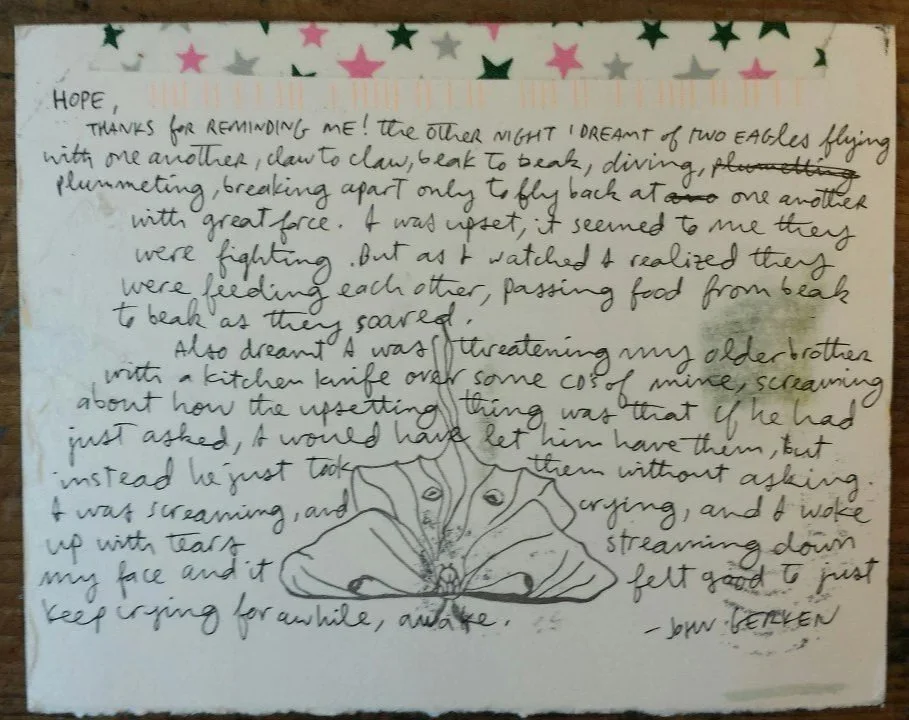 HOPE,
THANKS for REMINDING ME! the other NIGHT I DREAMT of TWO EAGLES flying
with one another, claw to claw, beak to beak, diving, plumetting
plummeting, breaking apart only to fly back at one another
with great force. I was upset, it seemed to me they
were fighting. But as I watched I realized they
were feeding each other, passing food from beak
to beak as they soared.
Also dreamt I was threatening my older brother
with a kitchen knife over some CDs of mine, screaming
about how the upsetting thing was that if he had
just asked, I would have let him have them, but
instead he just took them without asking.
I was screaming, and crying, and I woke
up with tears streaming down
my face and it felt good to just
keep crying for awhile, awake.
- JOHN GERKEN